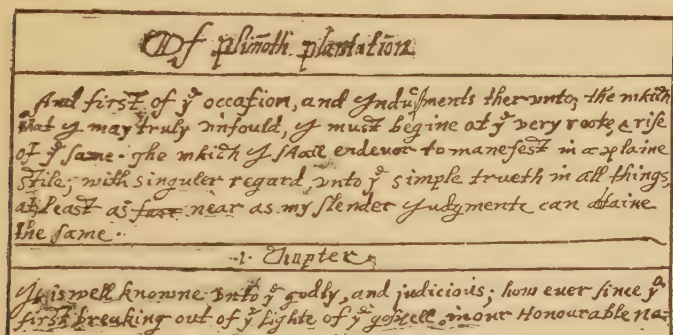 Of plim̃oth plantation
And first of yᵉ occasion, and Indusments ther unto; the which
that I may truly unfould, I must begine at yᵉ very roote, & rise
of yᵉ same. The which I shall endevor to manefest in a plaine
stile; with singuler regard unto yᵉ simple trueth in all things,
at least as near as my slender Judgmente can attaine
the same.
1. Chapter
It is well knowne unto yᵉ godly, and judicious; how ever since yᵉ
first breaking out of yᵉ lighte of yᵉ gospell, in our Honourable na-